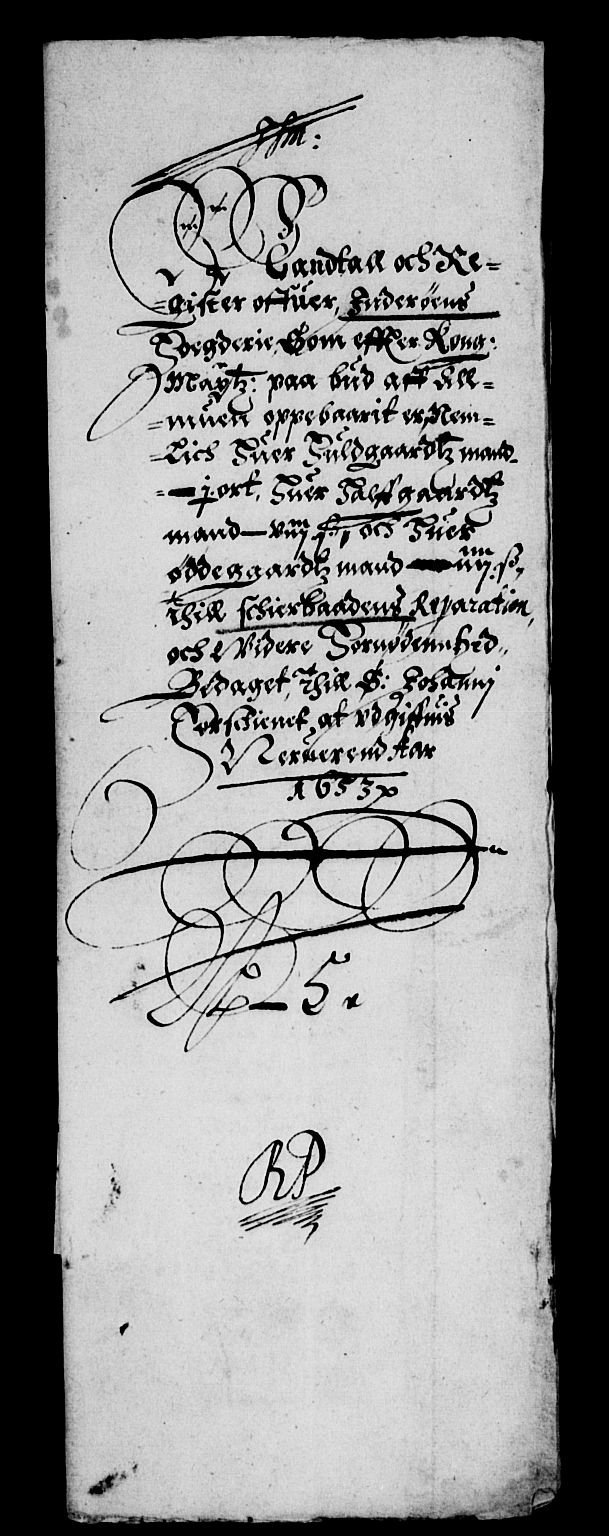 Mandtall och Re-
-gister offuer, Inderøens
Foegderie, Som effter Kong:
Maÿtz: paa bud aff All-
-muen oppebaarit er, Nem-
-Lich Huer Fuldgaardtz mand-
- j. ort, Huer Halffgaardtz
mand - viij s:, och Huer
øddegaardtz mand - iiij s:,
thill schierbaadens Reparation,
och Widere Fornødennhed,,
Bedaget, Thill S: Johannj
Forschienet, at vdgiffuis
Nerwerend Aar
1653
RP